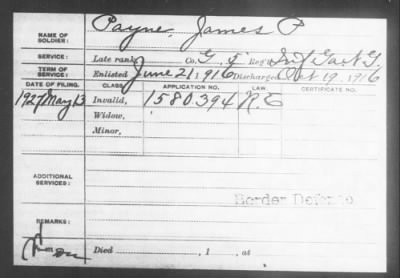 Payne, James P
NAME OF SOLDIER:
SERVICE: Late rank, Co. G, Reg't Inf Ga N G.
TERM OF SERVICE: Enlisted June 21, 1916 Discharged Oct 19, 1916
DATE OF FILING. CLASS. APPLICATION NO. LAW. CERTIFICATE NO.
1927 May 13 Invalid, 1580394
Widow,
Minor,
ADDITIONAL SERVICES:
Border Defense
REMARKS:
Died , 1 , at